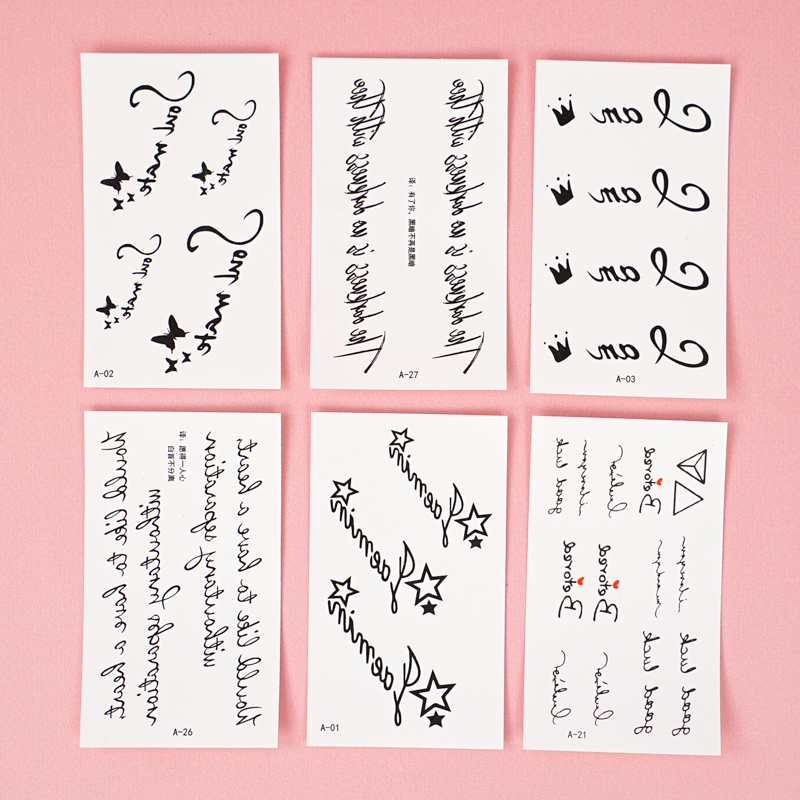 Soul mate
Soul mate
Soul mate
Soul mate
A-02
The darkness is no darkness with thee
译：有了你，黑暗不再是黑暗
The darkness is no darkness with thee
A-27
I am
I am
I am
I am
A-03
Would like to have a heart
without any separation
译：愿得一人心
白首不分离
Would like to have a heart
without any separation
A-26
A-01
good luck
good luck
good luck
A-21